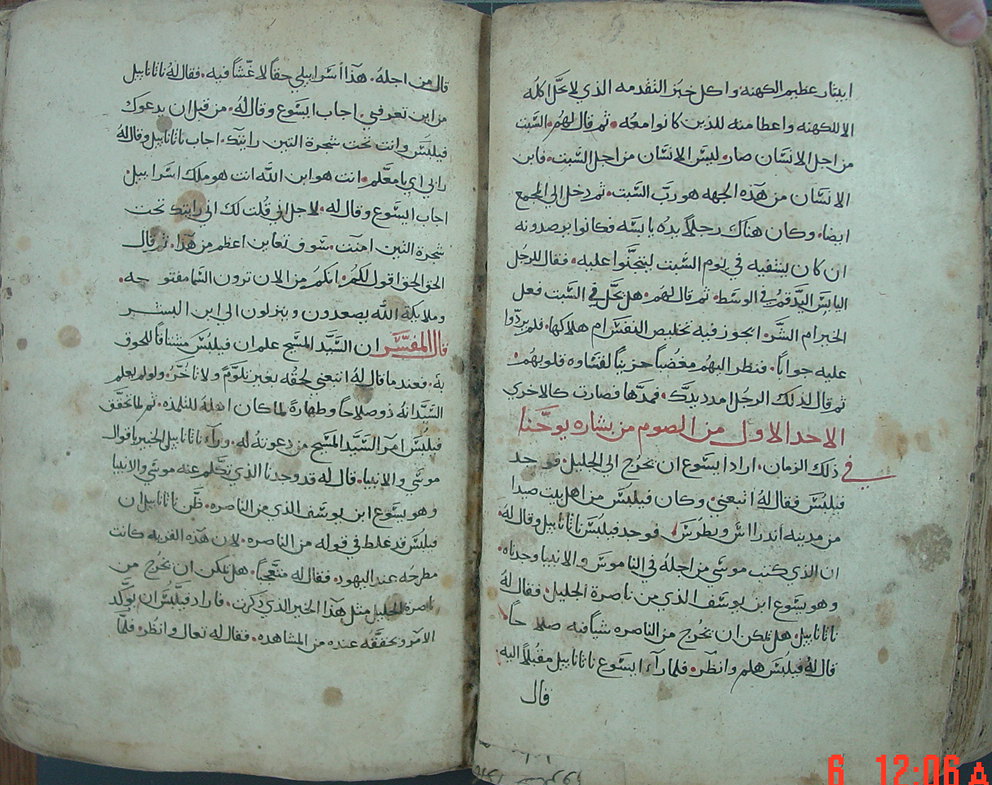 ابيتار عظيم الكهنه واكل خبز التقدمه الذي لا يحل اكله
الا للكهنه واعطا منه للذين كانوا معه. ثم قال لهم السبت
من اجل الانسان صار. ليس الانسان من اجل السبت. فابن
الانسان من هذه الجهه هو رب السبت. ثم دخل الي المجمع
ايضا. وكان هناك رجلاً يده يابسه فكانوا يرصدونه
ان كان يشفيه في يوم السبت ليتحنوا عليه. فقال للرجل
اليابس اليد قم في الوسط. ثم قال لهم. هل يحل في السبت فعل
الخير ام الشر. ايجوز فيه تخليص النفس ام هلاكها. فلم يردوا
عليه جواباً. فنظر اليهم مغضباً حزيناً لقساوه قلوبهم.
ثم قال لذلك الرجل مدد يدك. فمدها فصارت كالاخري
الاحد الاول من الصوم من بشاره يوحنا
في ذلك الزمان. اراد ايسوع ان يخرج الي الجليل. فوجد
فيلبس فقال له اتبعني. وكان فيلبس من اهل بيت صيدا
من مدينه اندراس وبطرس. فوجد فيلبس ناثانابيل وقال له
ان الذي كتب موسي من اجله في الناموس والانبيا وجدناه.
وهو يسوع ابن يوسف الذي من ناصرة الجليل فقال له
ناثانابيل. هل يمكن ان يخرج من الناصره شيا فيه صلاحاً.
قال له فيلبس هلم وانظر. فلما راء ايسوع ناثانابيل مقبلاً اليه
قال
قال من اجله. هذا اسرابيلي حقاً لا غشاً فيه. فقال له ناثانابيل
من اين تعرفني. اجاب ايسوع وقال له. من قبل ان يدعوك
فيلبس وانت تحت شجرة التين رايتك. اجاب ناثانابيل وقال له
رابي اي يا معلم. انت هو ابن الله انت هو ملك اسرابيل
اجاب ايسوع وقال له. لاجل ان قلت لك اني رايتك تحت
شجرة التين امنت. سوف تعاين اعظم من هذا. ثم قال
الحق الحق اقول لكم. انكم من الان ترون السما مفتوحه.
وملابكة الله يصعدون وينزلون الي ابن البشر
قال المفسر ان السيد المسيح علم ان فيلبس مشتاقاً للحوق
به. فعندما قال له اتبعني لحقه بغير تلوم ولا تاخر. ولو لم يعلم
السيد انه ذو صلاحاً وطهارة لما كان اهله للتلمذه. ثم لما تحقق
فيلبس امر السيد المسيح من دعوته له. وراء ناثانابيل الخبير باقوال
موسي والانبيا. قال له قد وجدنا الذي تكلم عنه موسي والانبيا
وهو يسوع ابن يوسف الذي من الناصره. ظن ناثانابيل ان
فيلبس قد غلط في قوله من الناصره. لان هذه القريه كانت
مطرحه عند اليهود. فقال له متعجباً. هل يمكن ان يخرج من
ناصرة الجليل مثل هذا الخير الذي ذكرت. فاراد فيلبس ان يوكد
الامر ويحققه عنده من المشاهده. فقال له تعالي وانظر. فلما
6 12:06 A